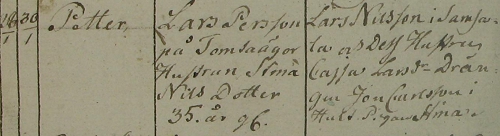 26/1 30/1 Petter,
Lars Persson
på Tomsaågor
Hustrun Stina
Nils Dotter
35. år 96.
Lars Nilsson i Samsa-
la as Dess Hustru
Cajsa Larsdr Drän-
gen Jon Carlsson i
Hult P. gan Stina